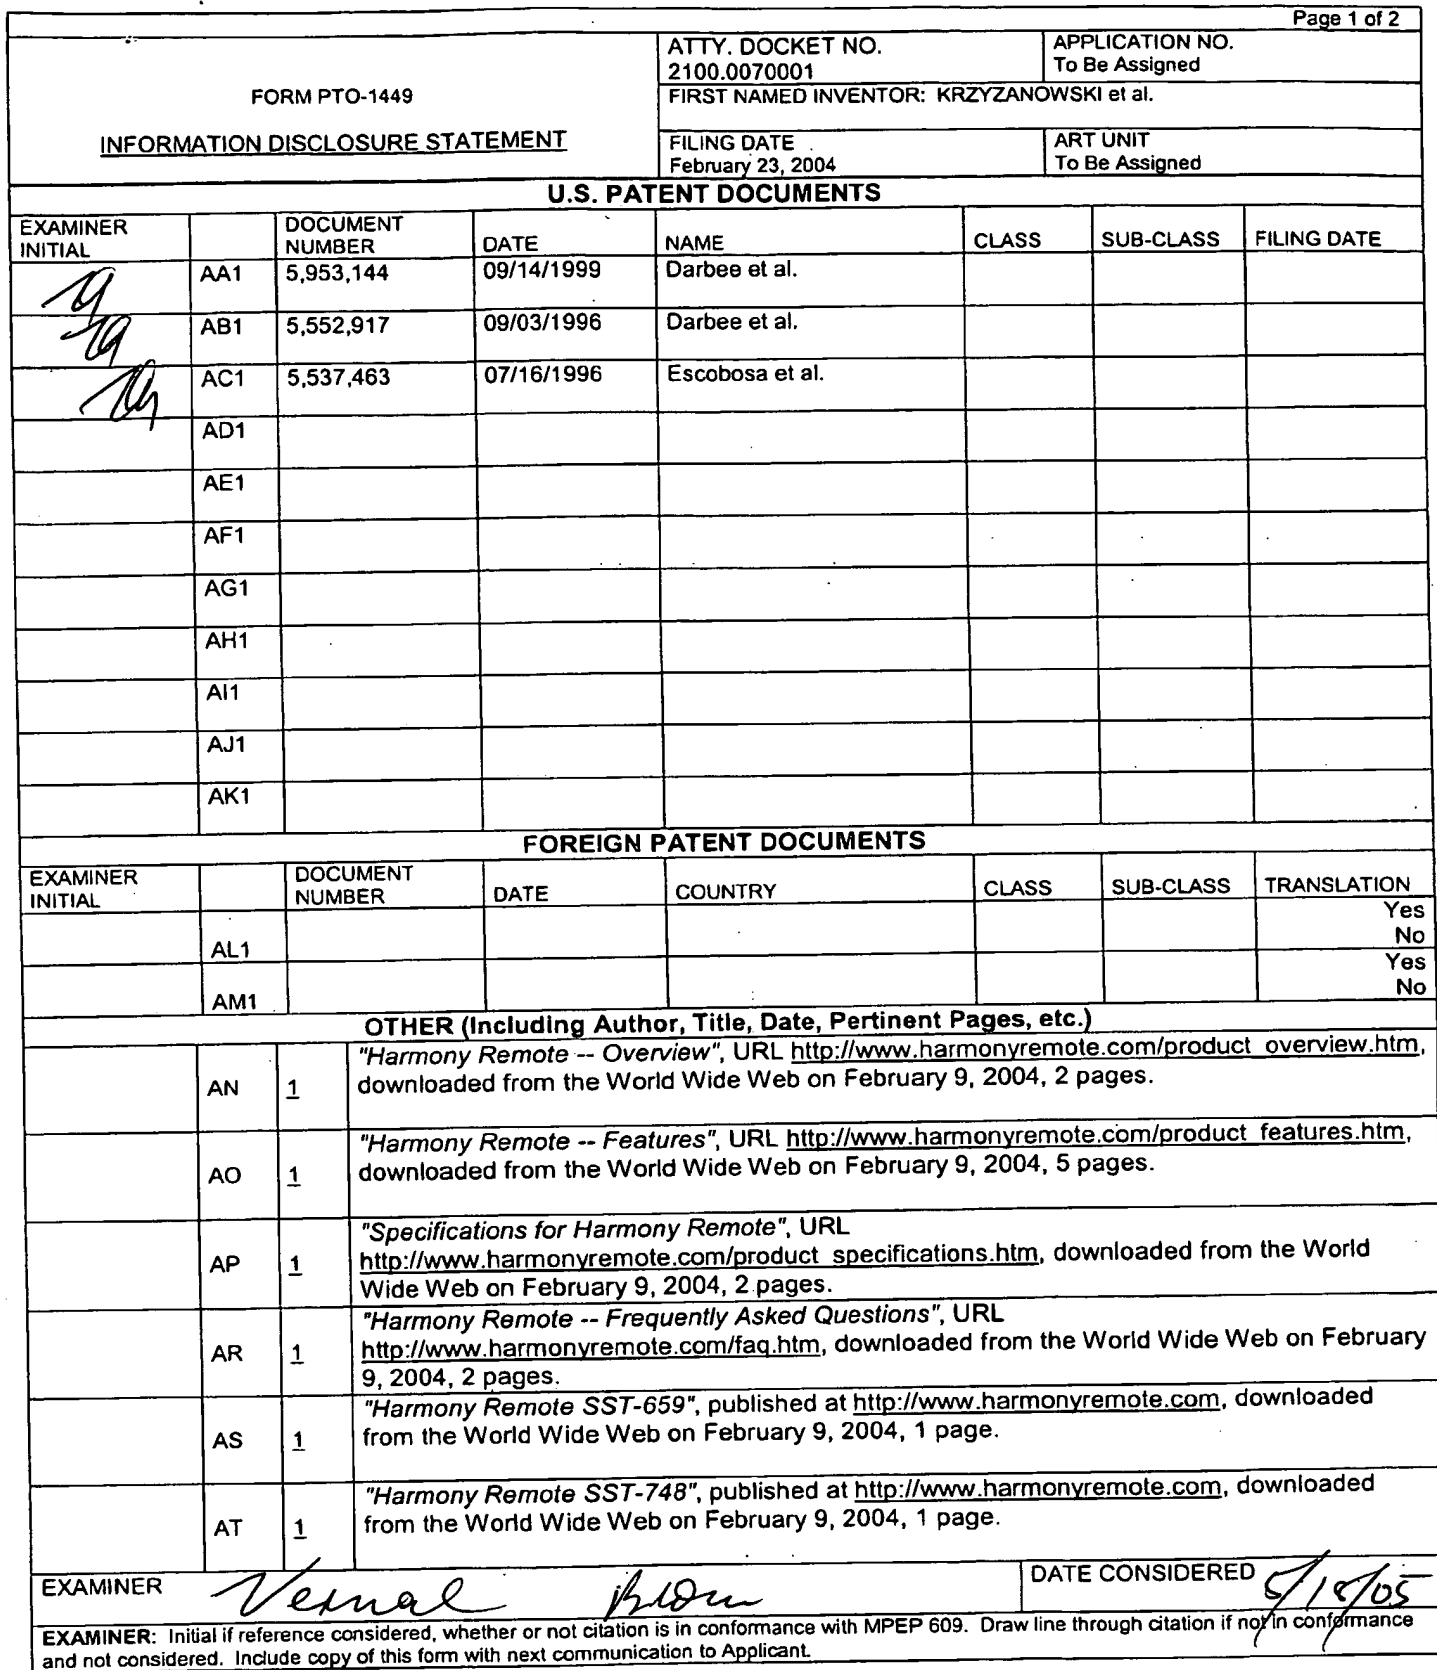 Page 1 of 2
FORM PTO-1449
INFORMATION DISCLOSURE STATEMENT
ATTY. DOCKET NO.
2100.0070001
APPLICATION NO.
To Be Assigned
FIRST NAMED INVENTOR: KRZYZANOWSKI et al.
FILING DATE
February 23, 2004
ART UNIT
To Be Assigned
U.S. PATENT DOCUMENTS
EXAMINER INITIAL DOCUMENT NUMBER DATE NAME CLASS SUB-CLASS FILING DATE
AA1 5,953,144 09/14/1999 Darbee et al.
AB1 5,552,917 09/03/1996 Darbee et al.
AC1 5,537,463 07/16/1996 Escobosa et al.
AD1
AE1
AF1
AG1
AH1
AI1
AJ1
AK1
FOREIGN PATENT DOCUMENTS
EXAMINER INITIAL DOCUMENT NUMBER DATE COUNTRY CLASS SUB-CLASS TRANSLATION
Yes
AL1 No
Yes
AM1 No
OTHER (Including Author, Title, Date, Pertinent Pages, etc.)
AN 1 "Harmony Remote -- Overview", URL http://www.harmonyremote.com/product_overview.htm,
downloaded from the World Wide Web on February 9, 2004, 2 pages.
AO 1 "Harmony Remote -- Features", URL http://www.harmonyremote.com/product_features.htm,
downloaded from the World Wide Web on February 9, 2004, 5 pages.
AP 1 "Specifications for Harmony Remote", URL
http://www.harmonyremote.com/product_specifications.htm, downloaded from the World
Wide Web on February 9, 2004, 2 pages.
AR 1 "Harmony Remote -- Frequently Asked Questions", URL
http://www.harmonyremote.com/faq.htm, downloaded from the World Wide Web on February
9, 2004, 2 pages.
AS 1 "Harmony Remote SST-659", published at http://www.harmonyremote.com, downloaded
from the World Wide Web on February 9, 2004, 1 page.
AT 1 "Harmony Remote SST-748", published at http://www.harmonyremote.com, downloaded
from the World Wide Web on February 9, 2004, 1 page.
EXAMINER Vernal Brown DATE CONSIDERED 5/18/05
EXAMINER: Initial if reference considered, whether or not citation is in conformance with MPEP 609. Draw line through citation if not in conformance
and not considered. Include copy of this form with next communication to Applicant.